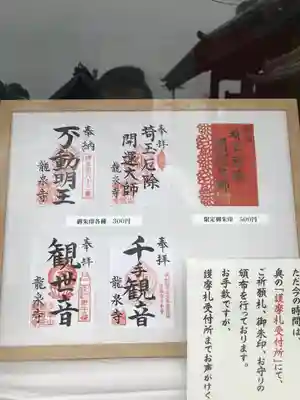 奉納
不動明王
龍泉寺
奉拝
埼玉厄除
開運大師
龍泉寺
御朱印各種 300円
限定御朱印 500円
奉拝
観世音
龍泉寺
奉拝
千手観音
龍泉寺
ただ今の時間は、
奥の「護摩札受付所」にて、
ご祈願札、御朱印、お守りの
頒布を行っております。
お手数ですが、
護摩札受付所までお声がけく